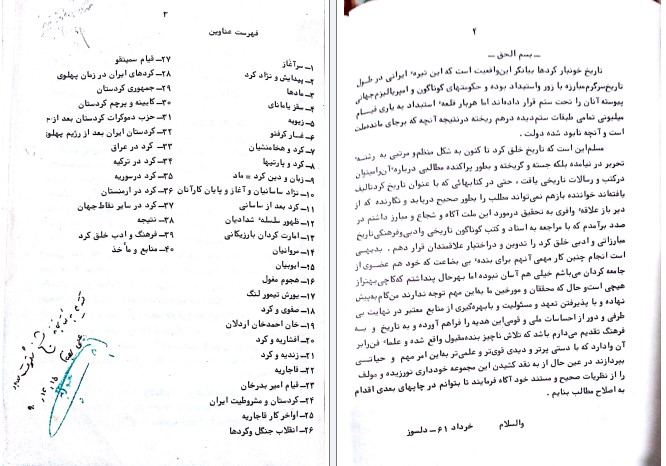 ۳
فهرست عناوین
۱ــ سرآغاز
۲ــ پیدایش و نژاد کرد
۳ــ مادها
۴ــ سقز یامانای
۵ــ زیویه
۶ــ غار کرفتو
۷ــ کرد و هخامنشیان
۸ــ کرد و پارتیها
۹ــ زبان و دین کرد = ماد
۱۰ــ نژاد ساسانیان و آغاز و پایان کارآنان
۱۱ــ کرد بعد از ساسانی
۱۲ــ ظهور سلسلهٔ شدادیان
۱۳ــ امارت کردان بارزیکانی
۱۴ــ مروانیان
۲۵ــ ایوبیان
۱۶ــ هجوم مغول
۱۷ــ یورش تیمور لنگ
۱۸ــ صفوی و کرد
۱۹ــ خان احمدخان اردلان
۲۰ــ افشاریه و کرد
۲۱ــ زندیه و کرد
۲۲ــ قاجاریه
۲۳ــ قیام امیر بدرخان
۲۴ــ کردستان و مشروطیت ایران
۲۵ــ اواخر کار قاجاریه
۲۶ــ انقلاب جنگل وکردها
۲۷ــ قیام سمیتقو
۲۸ــ کردهای ایران در زمان پهلوی
۲۹ــ جمهوری کردستان
۳۰ــ کابینه و پرچم کردستان
۳۱ــ حزب دموکرات کردستان بعد از
۳۲ــ کردستان ایران بعد از رژیم پهلوی
۳۳ــ کرد در عراق
۳۴ــ کرد در ترکیه
۳۵ــ کرد درسوریه
۳۶ــ کرد در ارمنستان
۳۷ــ کرد در سایر نقاط جهان
۳۸ــ نتیجه
۳۹ــ فرهنگ و ادب خلق کرد
۴۰ــ منابع و مأخذ
۴
ــ بسم الحق ــ
تاریخ خونبار کردها بیانگر این‌واقعیت است که این تیرهٔ ایرانی در طول
تاریخ‌سرگرم‌مبارزه با زور واستبداد بوده و حکومتهای گوناگون و امپریالیزم‌جهانی
پیوسته آنان را تحت ستم قرار داده‌اند اما هربار قلعهٔ استبداد به یاری قیام
میلیونی تمامی طبقات ستم‌دیده درهم ریخته درنتیجه آنچه که برجای مانده‌ملت
است و آنچه نابود شده دولت .
مسلم‌این است که تاریخ خلق کرد تا کنون به شکل منظم‌و مرتبی به رشته
تحریر در نیامده بلکه جسته و گریخته و بطور پراکنده مطالبی دربارهٔ آن‌رامیتوان
درکتب و رسالات تاریخی یافت ، حتی در کتابهائی که با عنوان تاریخ کردتالیف
یافته‌اند خواننده بازهم نمی‌تواند مطلب را بطور صحیح دریابد و نگارنده که از
دیر باز علاقهٔ وافری به تحقیق درمورد این ملت آگاه و شجاع و مبارز داشتم در
صدد برآمدم که با مراجعه به اسناد و کتب گوناگون تاریخی وادبی‌وفرهنگی‌تاریخ
مبارزاتی و ادبی خلق کرد را تدوین و دراختیار علاقمندان قرار دهم . بدیهی
است انجام چنین کار مهمی آنهم برای بندهٔ بی بضاعت که خود هم عضوی از
جامعه کردان می‌باشم خیلی هم آسان نبوده اما بهرحال پنداشتم که‌کاچی‌بهتراز
هیچی است‌وحال که محققان و مورخین ما به‌این مهم توجه ندارند من‌گام‌به‌پیش
نهاده و با پذیرفتن تعهد و مسئولیت و بابهره‌گیری از منابع معتبر در نهایت بی
طرفی و دور از احساسات ملی و قومی‌این هدیه را فراهم آورده و به تاریخ و به
فرهنگ تقدیم می‌دارم باشد که تلاش ناچیز بنده‌مقبول واقع شده و علماءٔ فن‌رابر
آن وادارد که با دستی پرتر و دیدی قوی‌تر و علمی‌تر به‌این امر مهم و حیاتی
بپردازند در عین حال از به نقد کشیدن این مجموعه خودداری نورزیده و مولف
را از نظریات صحیح و مستند خود آگاه فرمایند تا بتوانم در چاپهای بعدی اقدام
به اصلاح مطالب بنایم .
والسلام خرداد ۶۱ ــ دلسوز